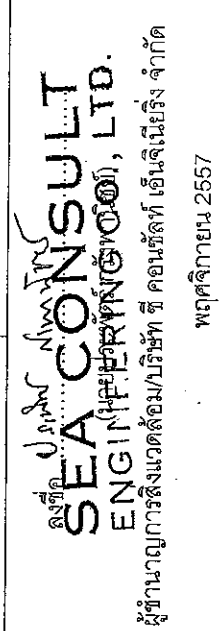 ลงชื่อ
SEA CONSULT
ENGINEERING CO., LTD.
ผู้ชำนาญการสิ่งแวดล้อม/บริษัท ซี คอนซัลท์ เอ็นจิเนียริ่ง จำกัด
พฤศจิกายน 2557